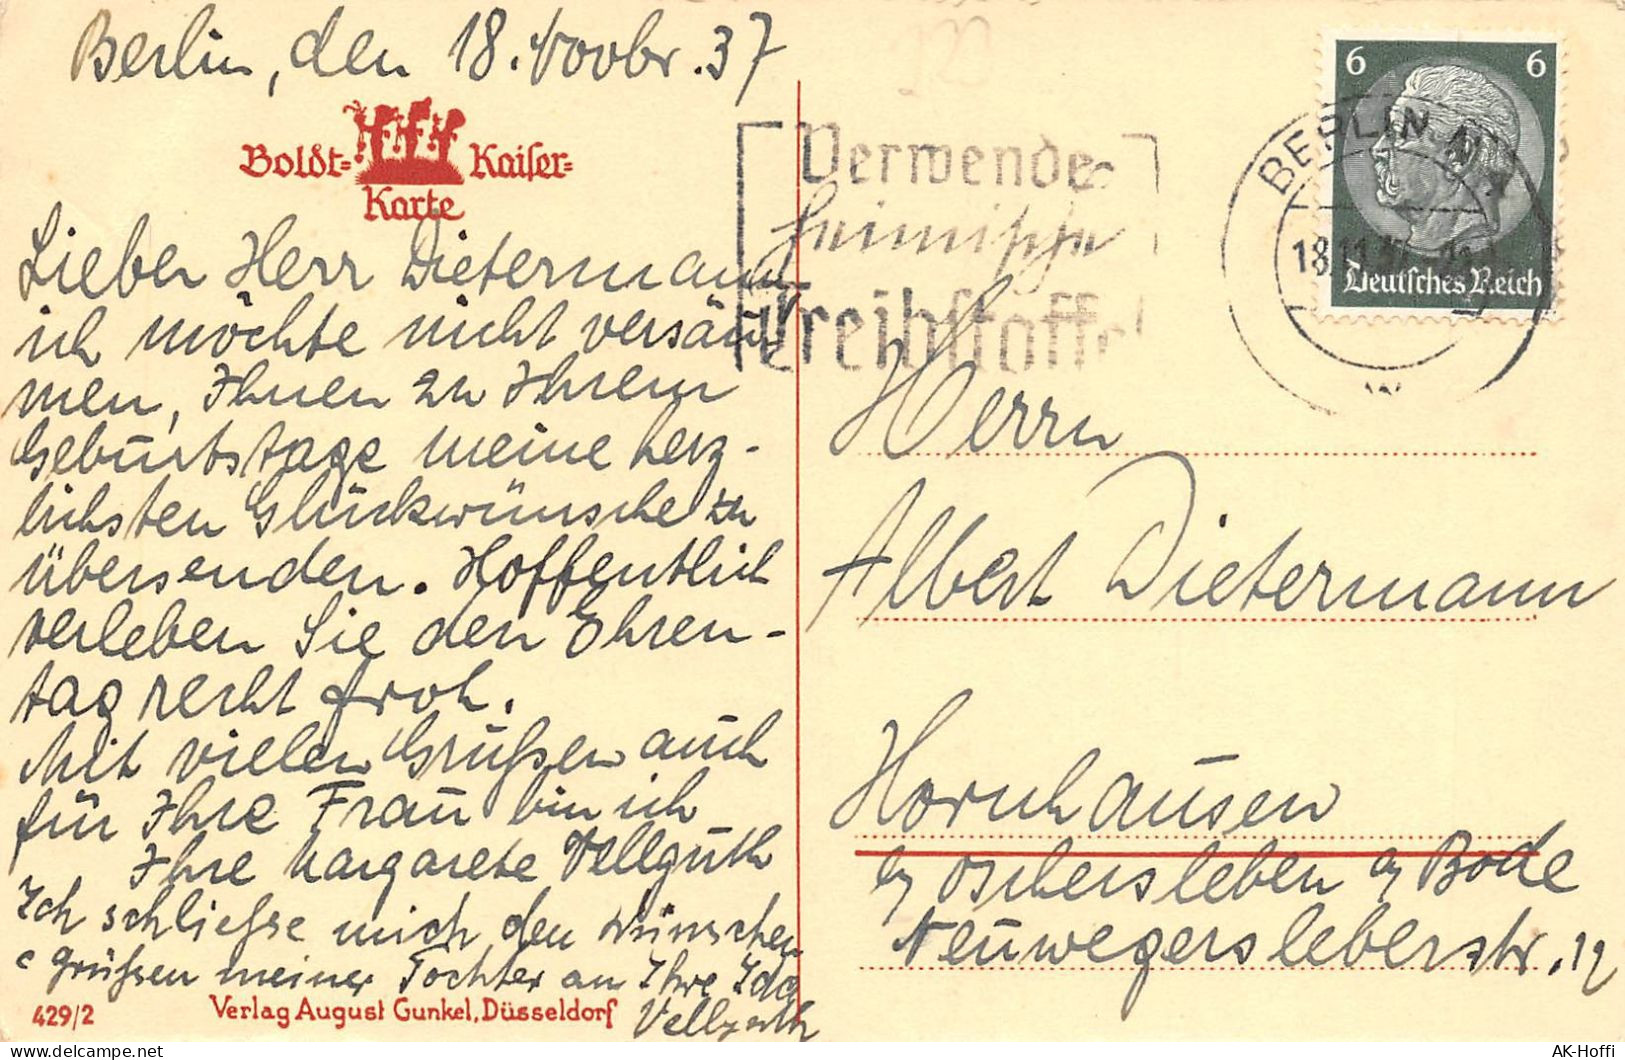 Berlin, den 18. Novbr. 37
Boldt= Kaiser=
Karte
Lieber Herr Dietermann
ich möchte nicht versäu
men, Ihnen zu Ihrem
Geburtstage meine herz-
lichsten Glückwünsche zu
übersenden. Hoffentlich
verleben Sie den Ehren-
tag recht froh.
Mit vielen Grüßen auch
für Ihre Frau bin ich
Ihre Margarete Vellguth
Ich schließe mich den Wünschen
Grüßen meiner Tochter an Ihre Ida
Vellguth
429/2
Verlag August Gunkel, Düsseldorf
Verwende
heimische
Treibstoffe!
BERLIN
18.11.37
6 6
Deutsches Reich
Herrn
Albert Dietermann
Hornhausen
b/ Oschersleben a/ Bode
Neuwegersleberstr. 12
AK-Hoffi